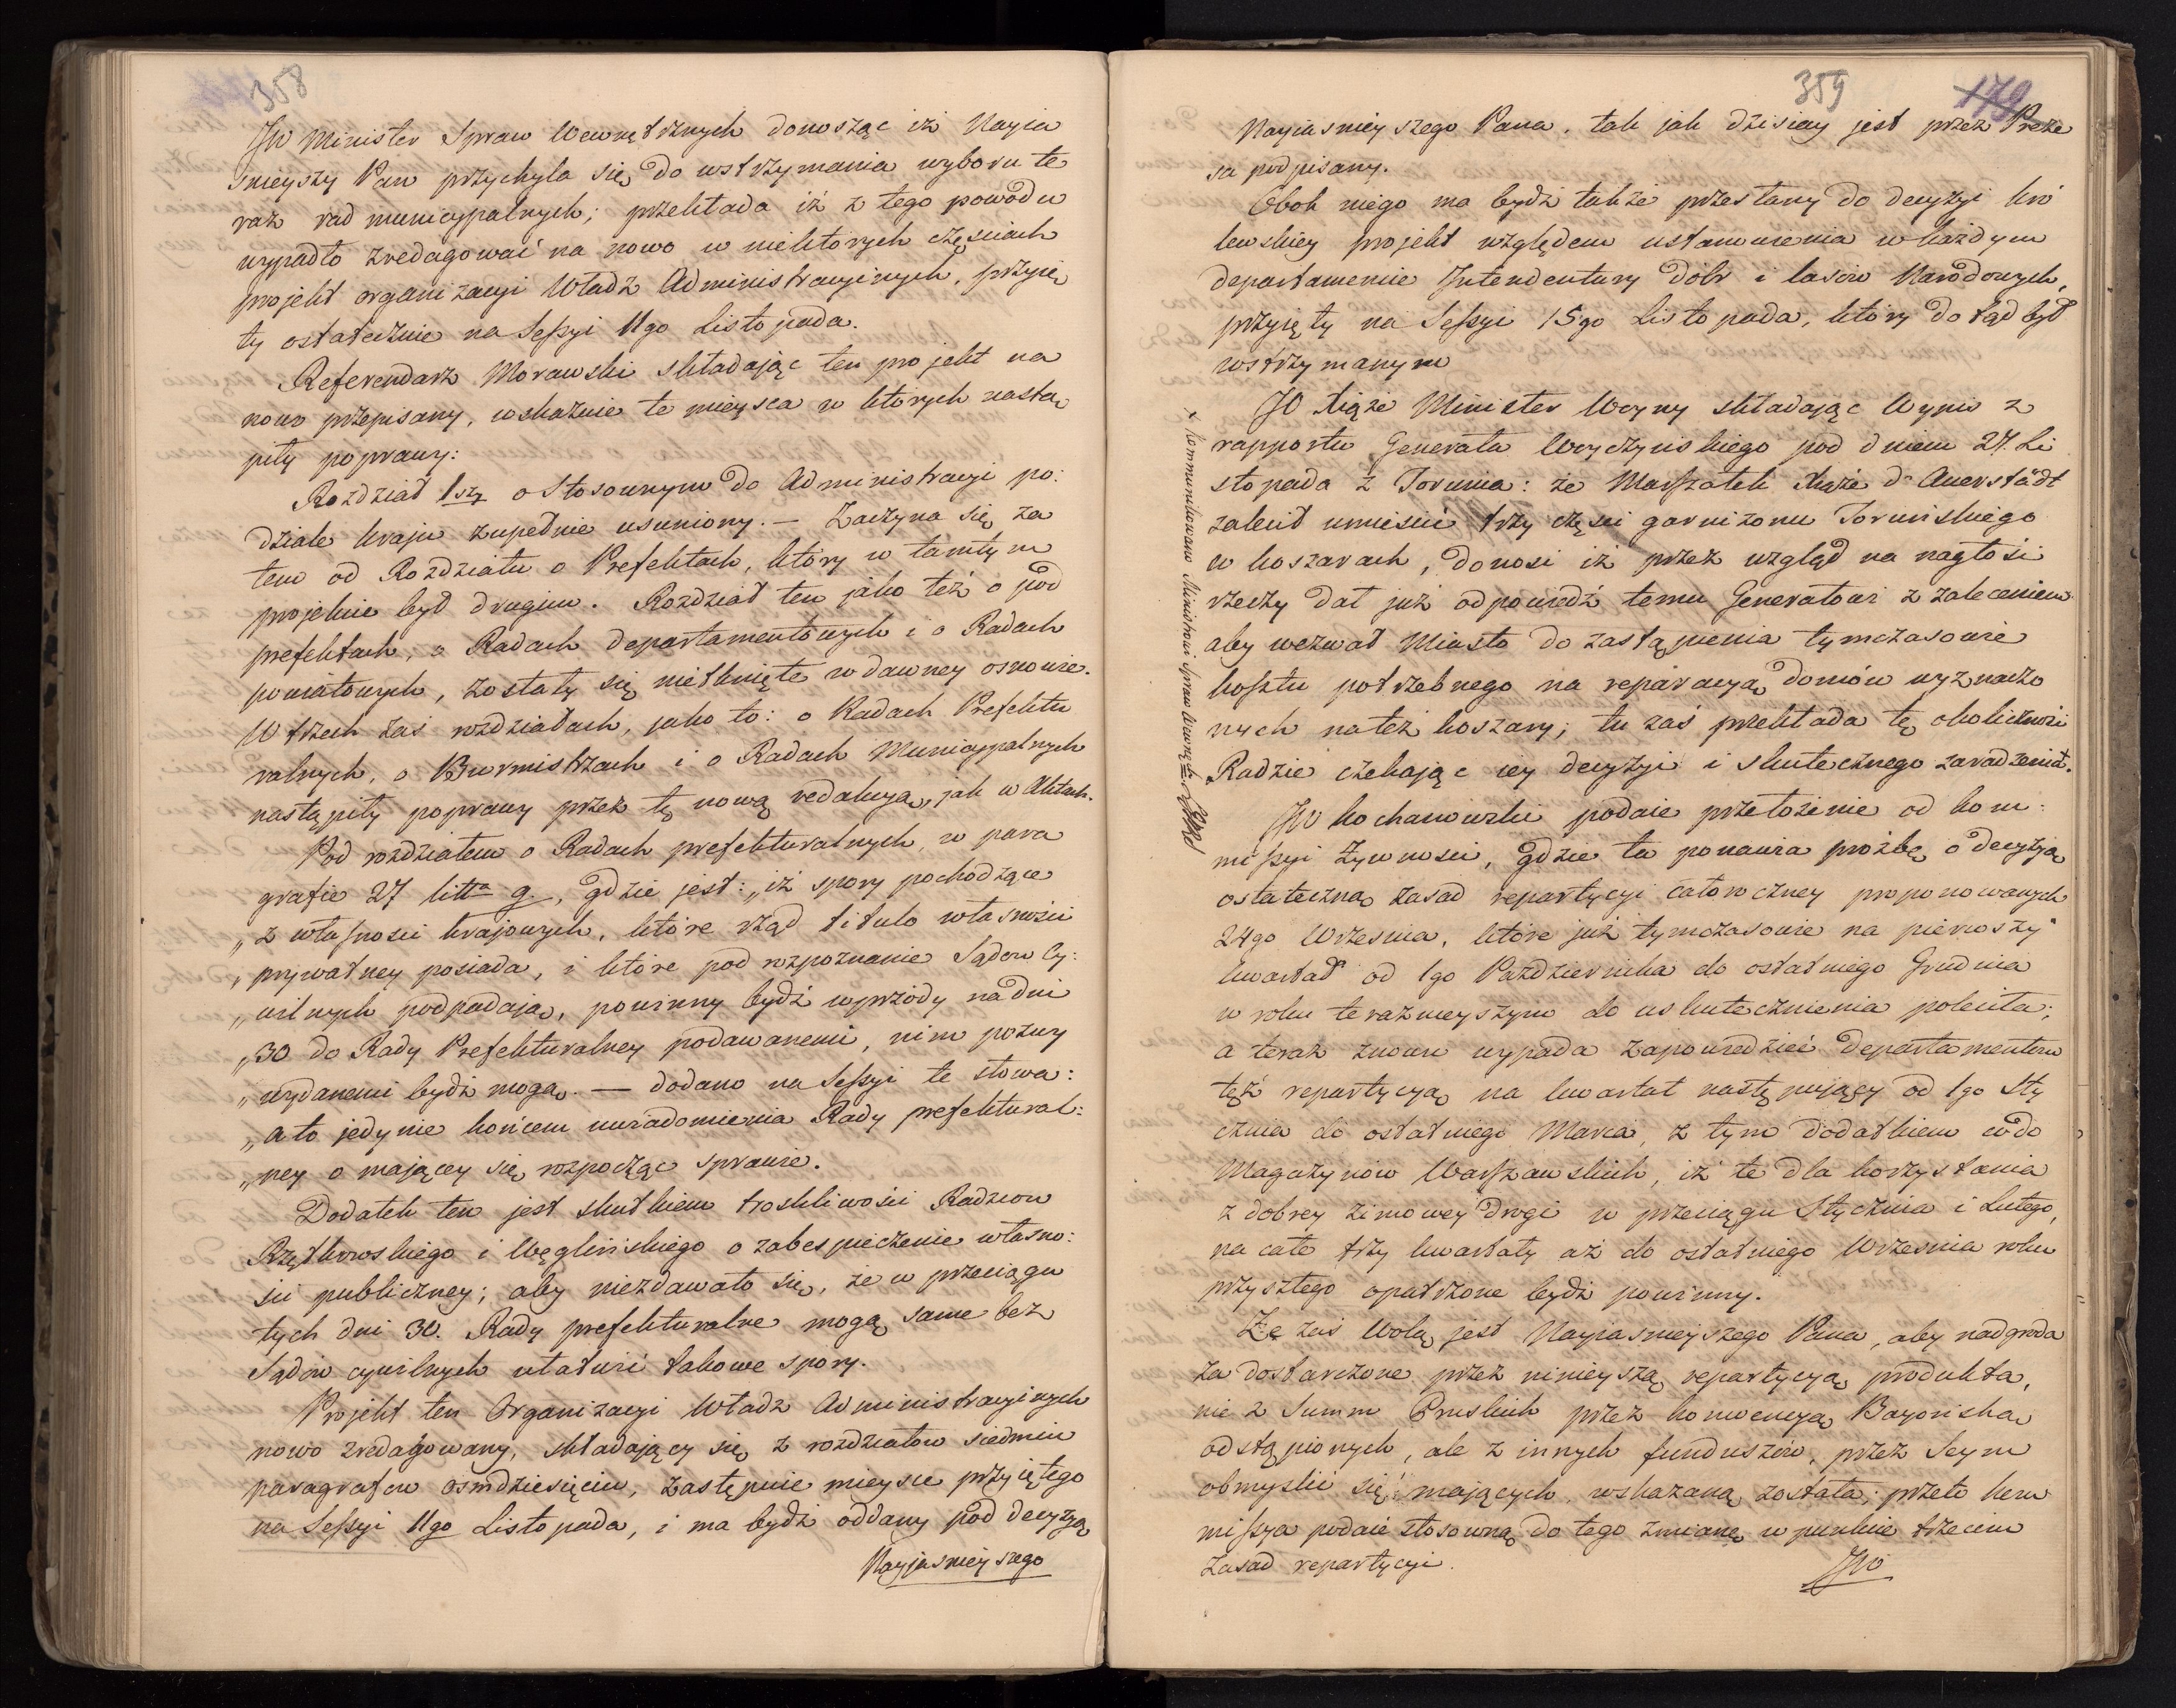 358
JW Minister Spraw Wewnętrznych donosząc iż Nayia
snieyszy Pan przychyla się do wstrzymania wyboru te
raz rad municypalnych; przekłada iż z tego powodu
wypadło zredagować na nowo w niektorych częsciach
projekt organizacyi Władz Administracyinych, przyię
ty ostatecznie na Sessyi 11go Listopada.
Referendarz Morawski składając ten projekt na
nowo przepisany, wskazuie te mieysca w ktorych nastą
piły poprawy:
Rozdział 1szy o Stosownym do Administracyi po:
dziale kraju zupełnie usuniony. — Zaczyna się za
tem od Rozdziału o Prefektach, który w tamtym
projekcie był drugim. Rozdział ten jako też o pod
prefektach, o Radach departamentowych i o Radach
powiatowych, zostały się nietknięte w dawney osnowie.
W trzech zaś rozdziałach, jako to: o Radach Prefektu
ralnych, o Burmistrzach i o Radach Municypalnych
nastąpiły poprawy przez tę nową redakcyą, jak w Aktach.
Pod rozdziałem o Radach prefekturalnych, w para
grafie 27 litta g., gdzie jest: „iż spory pochodzące
„z własnosci krajowych, które rząd titulo własnosci
„prywatney posiada, i które pod rozpoznanie Sądow Cy:
„wilnych podpadają, powinny bydź wprzódy na dni
„30 do Rady Prefekturalney podawanemi, nim pozwy
„wydanemi bydź mogą. — dodano na Sessyi te słowa:
„a to jedynie końcem uwiadomienia Rady prefektural:
„ney o mającey się rozpocząc sprawie.
Dodatek ten jest skutkiem troskliwości Radzcow
Rzętkowskiego i Węglińskiego o zabespieczenie własno:
sci publiczney; aby niezdawało się, że w przeciągu
tych dni 30. Rady prefekturalne mogą same bez
Sądów cywilnych ułatwić takowe spory.
Projekt ten Organizacyi Władz Administracyinych
nowo zredagowany, składający się z rozdziałow siedmiu
paragrafow osmdziesięciu, zastępuie mieysce przyiętego
na Sessyi 11go Listopada, i ma bydź oddany pod decyzyą
Nayjasnieyszego
359
179
Nayiasnieyszego Pana, tak jak dzisiay jest przez Preze
sa podpisany.
Obok niego ma bydź także przesłany do decyzyi kró
lewskiey projekt względem ustanowienia w każdym
departamencie Intendentury dóbr i lasów Narodowych,
przyięty na Sessyi 15go Listopada, który dotąd był
wstrzymanym
JO Xiąże Minister Woyny składając Wypis z
rapportu Generała Woyczynskiego pod dniem 27. Li
stopada z Torunia: że Marszałek Xiąże d'Auerstädt
zalecił umieścić trzy częsci garnizonu Toruńskiego
w koszarach, donosi iż przez wzgląd na nagłość
rzeczy dał już odpowiedź temu Generałowi z zaleceniem
aby wezwał Miasto do zastąpienia tymczasowie
kosztu potrzebnego na reparacyą domów wyznaczo
nych na też koszary; tu zaś przekłada tę okoliczność
Radzie czekając iey decyzyi i skutecznego zaradzenia.
x Kommunikowano Ministrowi Spraw Wewnętr.
JW Kochanowski podaie przełożenie od Kom:
missyi Żywnosci, gdzie ta ponawia proźbę o decyzyą
ostateczną zasad repartycyi całoroczney proponowanych
24go Wrzesnia, które już tymczasowie na pierwszy
kwartał od 1go Pazdziernika do ostatniego Grudnia
w roku terazneyszym do uskutecznienia poleciła;
a teraz znowu wypada zapowiedzieć departamentom
też repartycyą na kwartał następujący od 1go Sty
cznia do ostatniego Marca, z tym dodatkiem co do
Magazynów Warszawskich, iż te dla korzystania
z dobrey zimowey drogi w przeciągu Stycznia i Lutego,
na całe trzy kwartały aż do ostatniego Wrzesnia roku
przyszłego opatrzone bydź powinny.
Że zaś Wolą jest Nayiasnieyszego Pana, aby nadgroda
za dostarczone przez ninieyszą repartycyą produkta,
nie z Summ Pruskich przez konwencyą Bayońską
odstąpionych, ale z innych funduszów, przez Seym
obmyslić się mających, wskazaną została; przeto Kom
missya podaie stosowną do tego zmianę w punkcie trzecim
zasad repartycyi.
JW